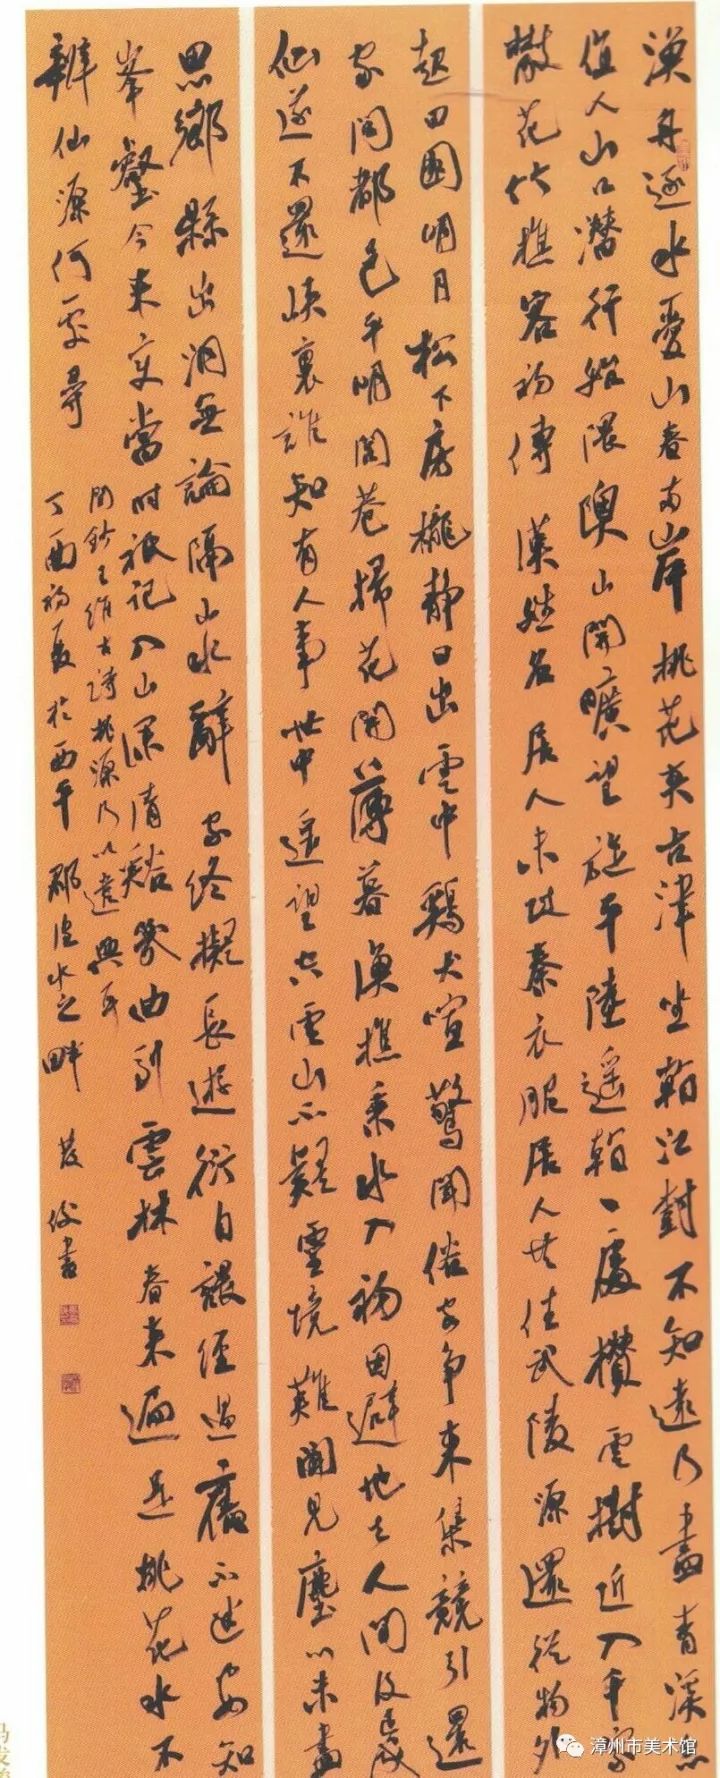 漁舟逐水愛山春兩岸桃花夾古津坐看紅樹不知遠行盡青溪忽
值人山口潛行始隈隩山開曠望旋平陸遙看一處攢雲樹近入千家
散花竹樵客初傳漢姓名居人未改秦衣服居人共住武陵源還從物外
起田園明月松下房櫳靜日出雲中雞犬喧驚聞俗客爭來集競引還
家問都邑平明閭巷掃花開薄暮漁樵乘水入初因避地去人間及至成
仙遂不還峽裏誰知有人事世中遙望空雲山不疑靈境難聞見塵心未盡
思鄉縣出洞無論隔山水辭家終擬長遊衍自謂經過舊不迷安知
峯壑今來變當時祇記入山深清谿幾曲到雲林春來遍是桃花水不
辨仙源何處尋
閑鈔王維古詩桃源行以遣興耳
丁酉初夏於西平郡湟水之畔 發俊書
漳州市美术馆